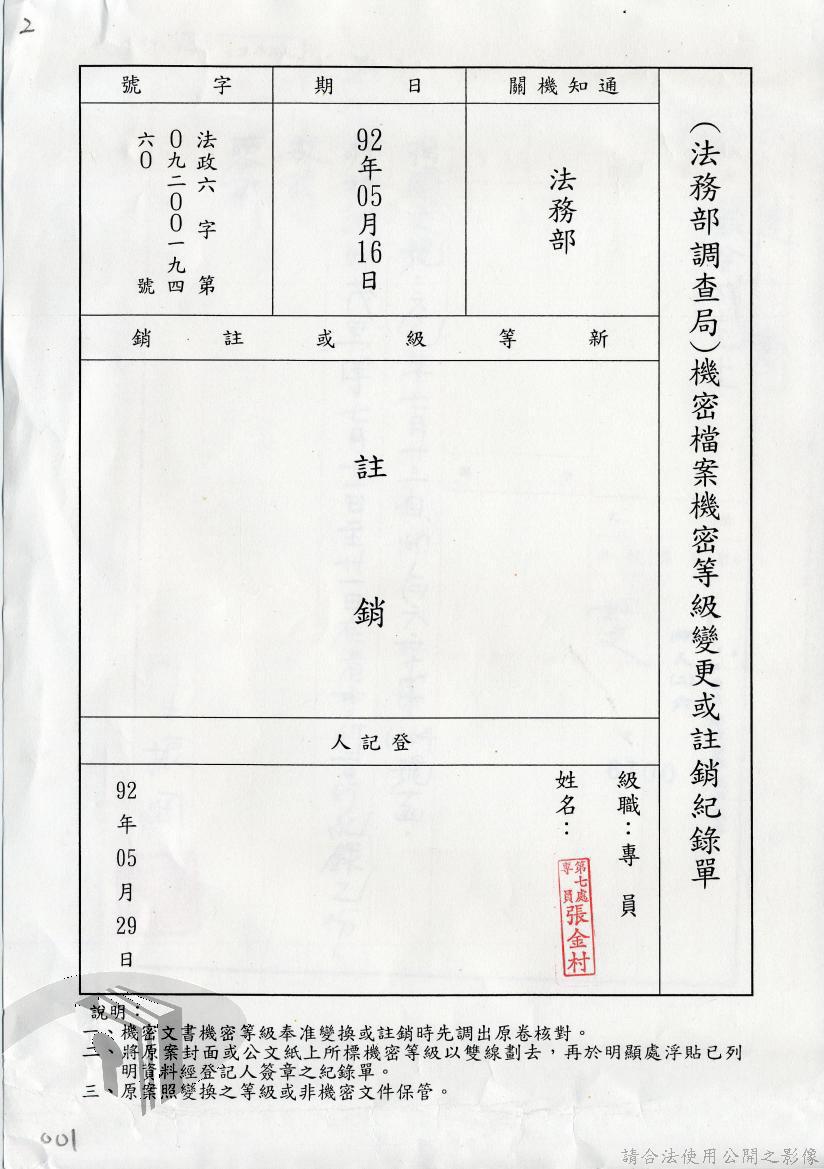 2
(法務部調查局)機密檔案機密等級變更或註銷紀錄單
通知機關
法務部
日期
92年05月16日
字號
法政六字第
0九二00一九四
六0號
新等級或註銷
註銷
登記人
級職:專員
姓名:
第七處
專員
張金村
92年05月29日
說明:
一、機密文書機密等級奉准變換或註銷時先調出原卷核對。
二、將原案封面或公文紙上所標機密等級以雙線劃去,再於明顯處浮貼已列
明資料經登記人簽章之紀錄單。
三、原案照變換之等級或非機密文件保管。
001
請合法使用公開之影像